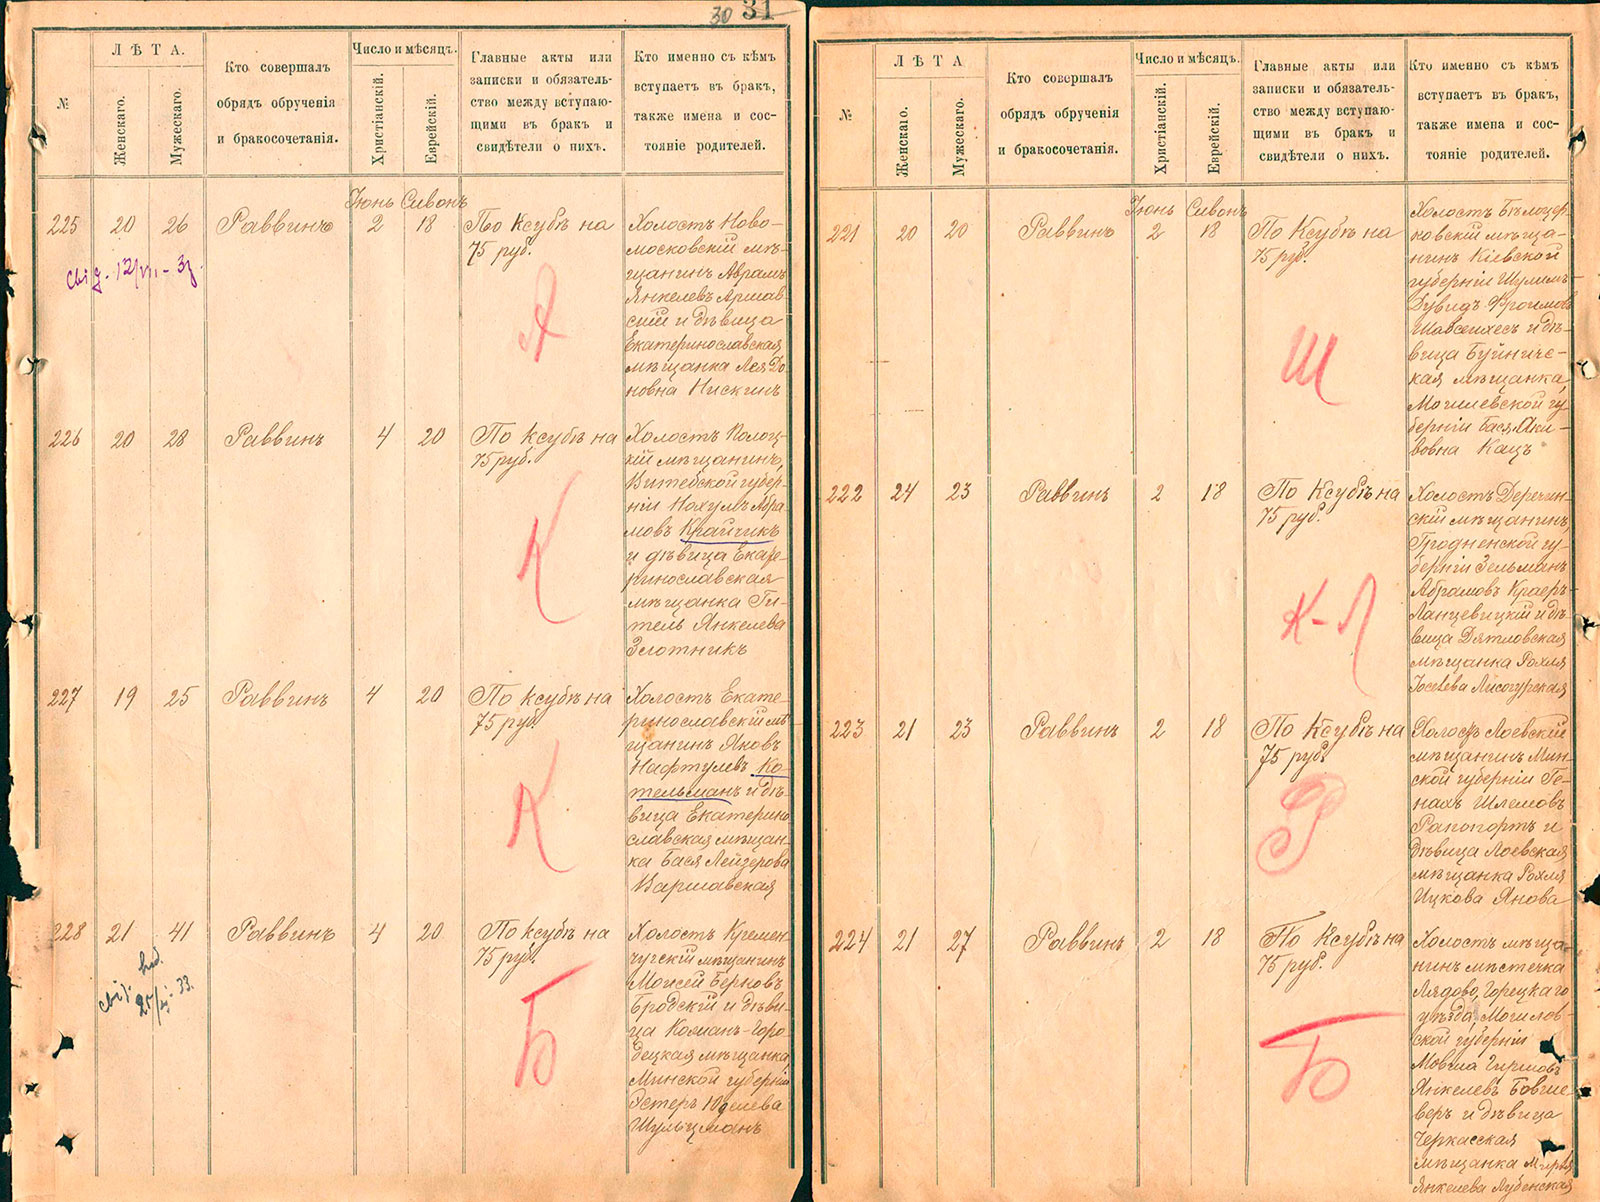 30 31
№
ЛѢТА.
Женскаго.
Мужескаго.
Кто совершалъ
обрядъ обрученія
и бракосочетанія.
Число и мѣсяцъ.
Христіанскій.
Еврейскій.
Главные акты или
записки и обязатель-
ство между вступаю-
щими въ бракъ и
свидѣтели о нихъ.
Кто именно съ кѣмъ
вступаетъ въ бракъ,
также имена и сос-
тояніе родителей.
Іюнь Сивонъ
225 20 26 Раввинъ 2 18
По Ксубѣ на
75 руб.
Холостъ Ново-
московскій мѣ-
щанинъ Аврамъ
Янкелевъ Аршав-
скій и дѣвица
Екатеринославская
мѣщанка Лея До
новна Нискинъ
А
226 20 28 Раввинъ 4 20
По Ксубѣ на
75 руб.
Холостъ Полоц-
кій мѣщанинъ,
Витебской губер-
ніи Нохумъ Абра
мовъ Крайчикъ
и дѣвица Екате-
ринославская
мѣщанка Ги-
тель Янкелева
Золотникъ
К
227 19 25 Раввинъ 4 20
По Ксубѣ на
75 руб.
Холостъ Екате-
ринославскій мѣ
щанинъ Яковъ
Нафтулевъ Ко-
тельманъ и дѣ-
вица Екатерино
славская мѣщан-
ка Бася Лейзерова
Варшавская
К
228 21 41 Раввинъ 4 20
По Ксубѣ на
75 руб.
Холостъ Кремен-
чугскій мѣщанинъ
Моисей Берковъ
Бродскій и дѣви-
ца Кожан-Горо
децкая мѣщанка,
Минской губерніи
Эстеръ Юделева
Шульцманъ
Б
№
ЛѢТА
Женскаго.
Мужескаго.
Кто совершалъ
обрядъ обрученія
и бракосочетанія.
Число и мѣсяцъ.
Христіанскій.
Еврейскій.
Главные акты или
записки и обязатель-
ство между вступаю-
щими въ бракъ и
свидѣтели о нихъ.
Кто именно съ кѣмъ
вступаетъ въ бракъ,
также имена и сос-
тояніе родителей.
Іюнь Сивонъ
221 20 20 Раввинъ 2 18
По Ксубѣ на
75 руб.
Холостъ Бѣлоцер-
ковскій мѣща-
нинъ Кіевской
губерніи Шулимъ
Дувидъ Фроимовъ
и дѣ-
вица Буйниче-
ская мѣщанка,
Могилевской гу-
берніи Бася Аки-
вовна Кацъ
Ш
222 24 23 Раввинъ 2 18
По Ксубѣ на
75 руб.
Холостъ Деречин-
скій мѣщанинъ,
Гродненской гу-
берніи Зельманъ
Абрамовъ Краеръ-
Ланцевицкій и дѣ
вица Дятловская
мѣщанка Рохля
Іоселева Лисогурская
К-Л
223 21 23 Раввинъ 2 18
По Ксубѣ на
75 руб.
Холостъ Лоевскій
мѣщанинъ Мин-
ской губерніи Ге-
нахъ Шлемовъ
Рапопортъ и
дѣвица Лоевская
мѣщанка Рохля
Ицкова Янова
Р
224 21 27 Раввинъ 2 18
По Ксубѣ на
75 руб.
Холостъ мѣща-
нинъ мѣстечка
Лядово, Горецкаго
уѣзда, Могилов-
ской губерніи
Мовша
Янкелевъ
и дѣвица
Черкасская
мѣщанка
Янкелева Лубенская
Б